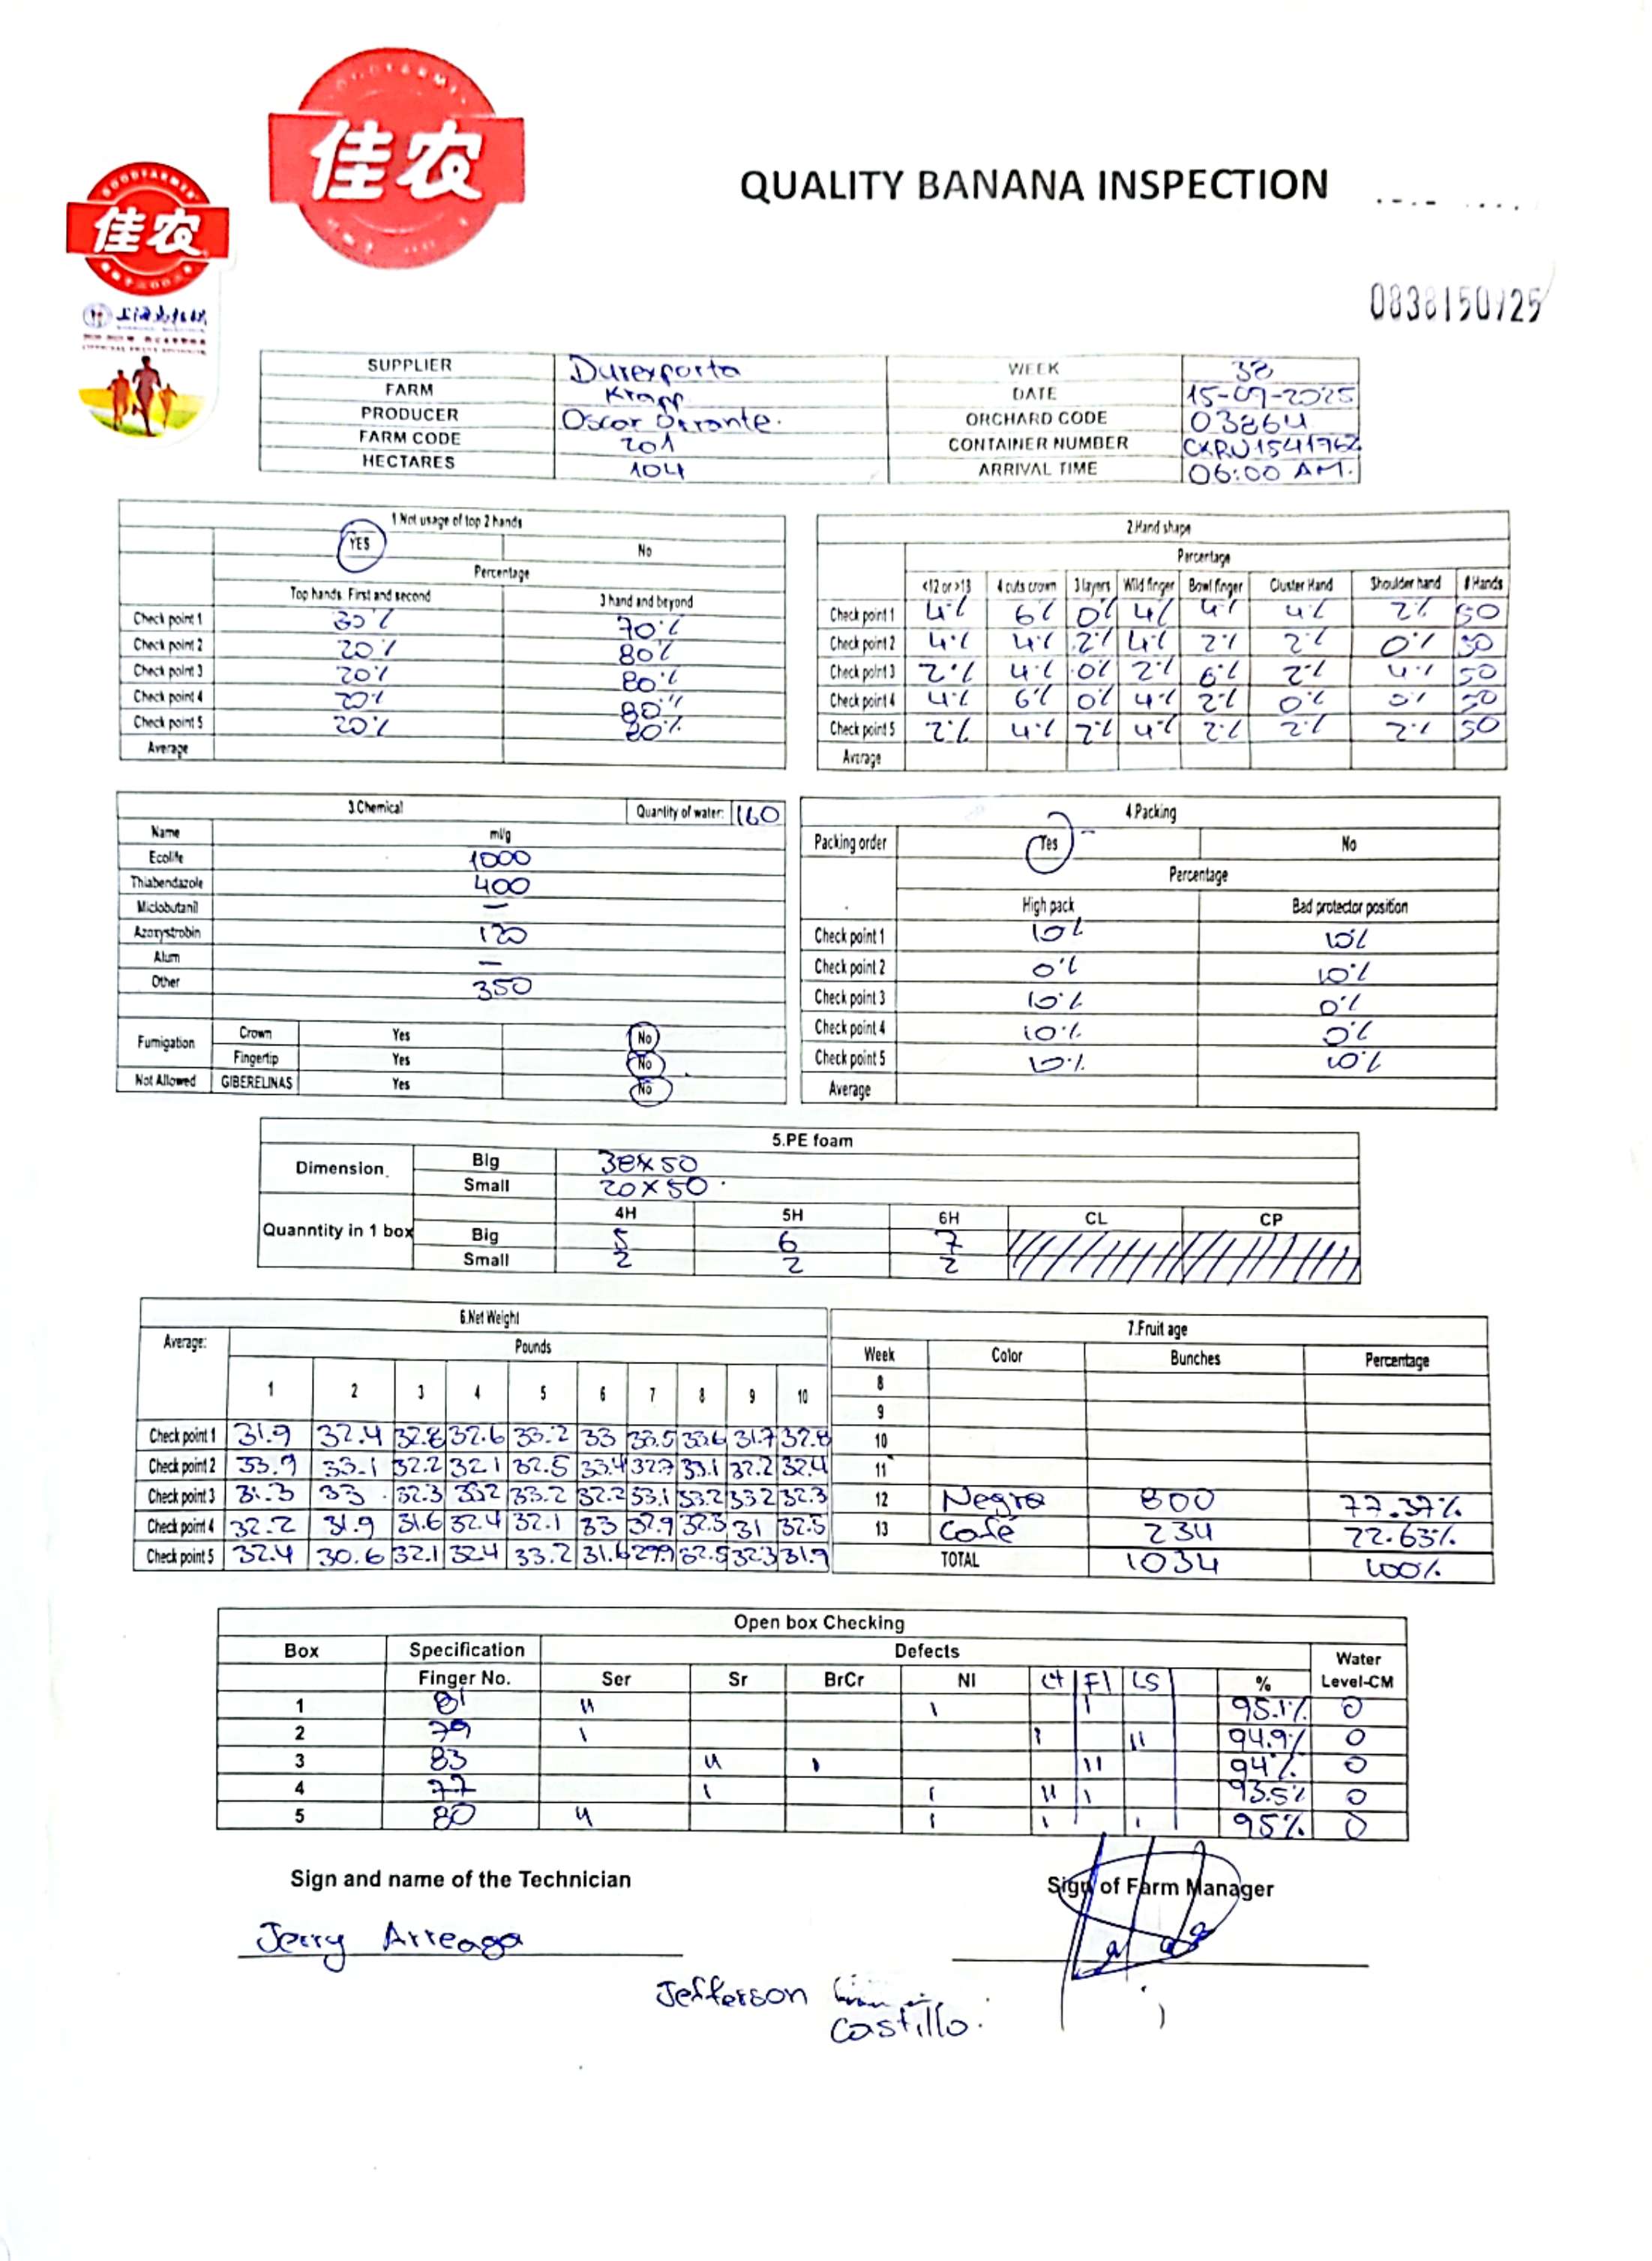 佳农
佳农
GOODFARMER
QUALITY BANANA INSPECTION
0838150925
SUPPLIER Durexporta WEEK 38
FARM Krapp DATE 15-09-2025
PRODUCER Oscar Orrante. ORCHARD CODE 03864
FARM CODE 201 CONTAINER NUMBER CXRU1541762
HECTARES 104 ARRIVAL TIME 06:00 AM.
1 Not usage of top 2 hands
YES No
Percentage
Top hands. First and second 3 hand and beyond
Check point 1 30% 70%
Check point 2 20% 80%
Check point 3 20% 80%
Check point 4 20% 80%
Check point 5 20% 80%
Average
2.Hand shape
Percentage
<12 or >13 4 cuts crown 3 layers Wild finger Bowl finger Cluster Hand Shoulder hand # Hands
Check point 1 4% 6% 0% 4% 4% 4% 2% 50
Check point 2 4% 4% 2% 4% 2% 2% 0% 50
Check point 3 2% 4% 0% 2% 6% 2% 4% 50
Check point 4 4% 6% 0% 4% 2% 0% 0% 50
Check point 5 2% 4% 2% 4% 2% 2% 2% 50
Average
3.Chemical Quantity of water: 160
Name ml/g
Ecolife 1000
Thiabendazole 400
Miclobutanil —
Azoxystrobin 120
Alum —
Other 350
Fumigation Crown Yes No
Fingertip Yes No
Not Allowed GIBERELINAS Yes No
4.Packing
Packing order Yes No
Percentage
High pack Bad protector position
Check point 1 10% 10%
Check point 2 0% 10%
Check point 3 10% 0%
Check point 4 10% 0%
Check point 5 10% 10%
Average
5.PE foam
Dimension. Big 38x50
Small 20x50
4H 5H 6H CL CP
Quanntity in 1 box Big 5 6 7
Small 2 2 2
6.Net Weight
Average: Pounds
1 2 3 4 5 6 7 8 9 10
Check point 1 31.9 32.4 32.8 32.6 33.2 33 33.5 33.6 31.7 32.8
Check point 2 33.9 33.1 32.2 32.1 32.5 33.4 32.7 33.1 32.2 32.4
Check point 3 31.3 33 32.3 33.2 33.2 32.2 33.1 33.2 33.2 32.3
Check point 4 32.2 31.9 31.6 32.4 32.1 33 32.9 32.3 31 32.5
Check point 5 32.4 30.6 32.1 32.4 33.2 31.6 29.9 32.5 32.3 31.9
7.Fruit age
Week Color Bunches Percentage
8
9
10
11
12 Negro 800 77.37%
13 Café 234 22.63%
TOTAL 1034 100%
Open box Checking
Box Specification Defects Water
Finger No. Ser Sr BrCr NI Ct Fl LS % Level-CM
1 81 11 1 1 95.1% 0
2 79 1 1 11 94.9% 0
3 83 11 1 11 94% 0
4 77 1 1 11 1 93.5% 0
5 80 11 1 1 1 95% 0
Sign and name of the Technician Sign of Farm Manager
Jerry Arreaga
Jefferson
Castillo.